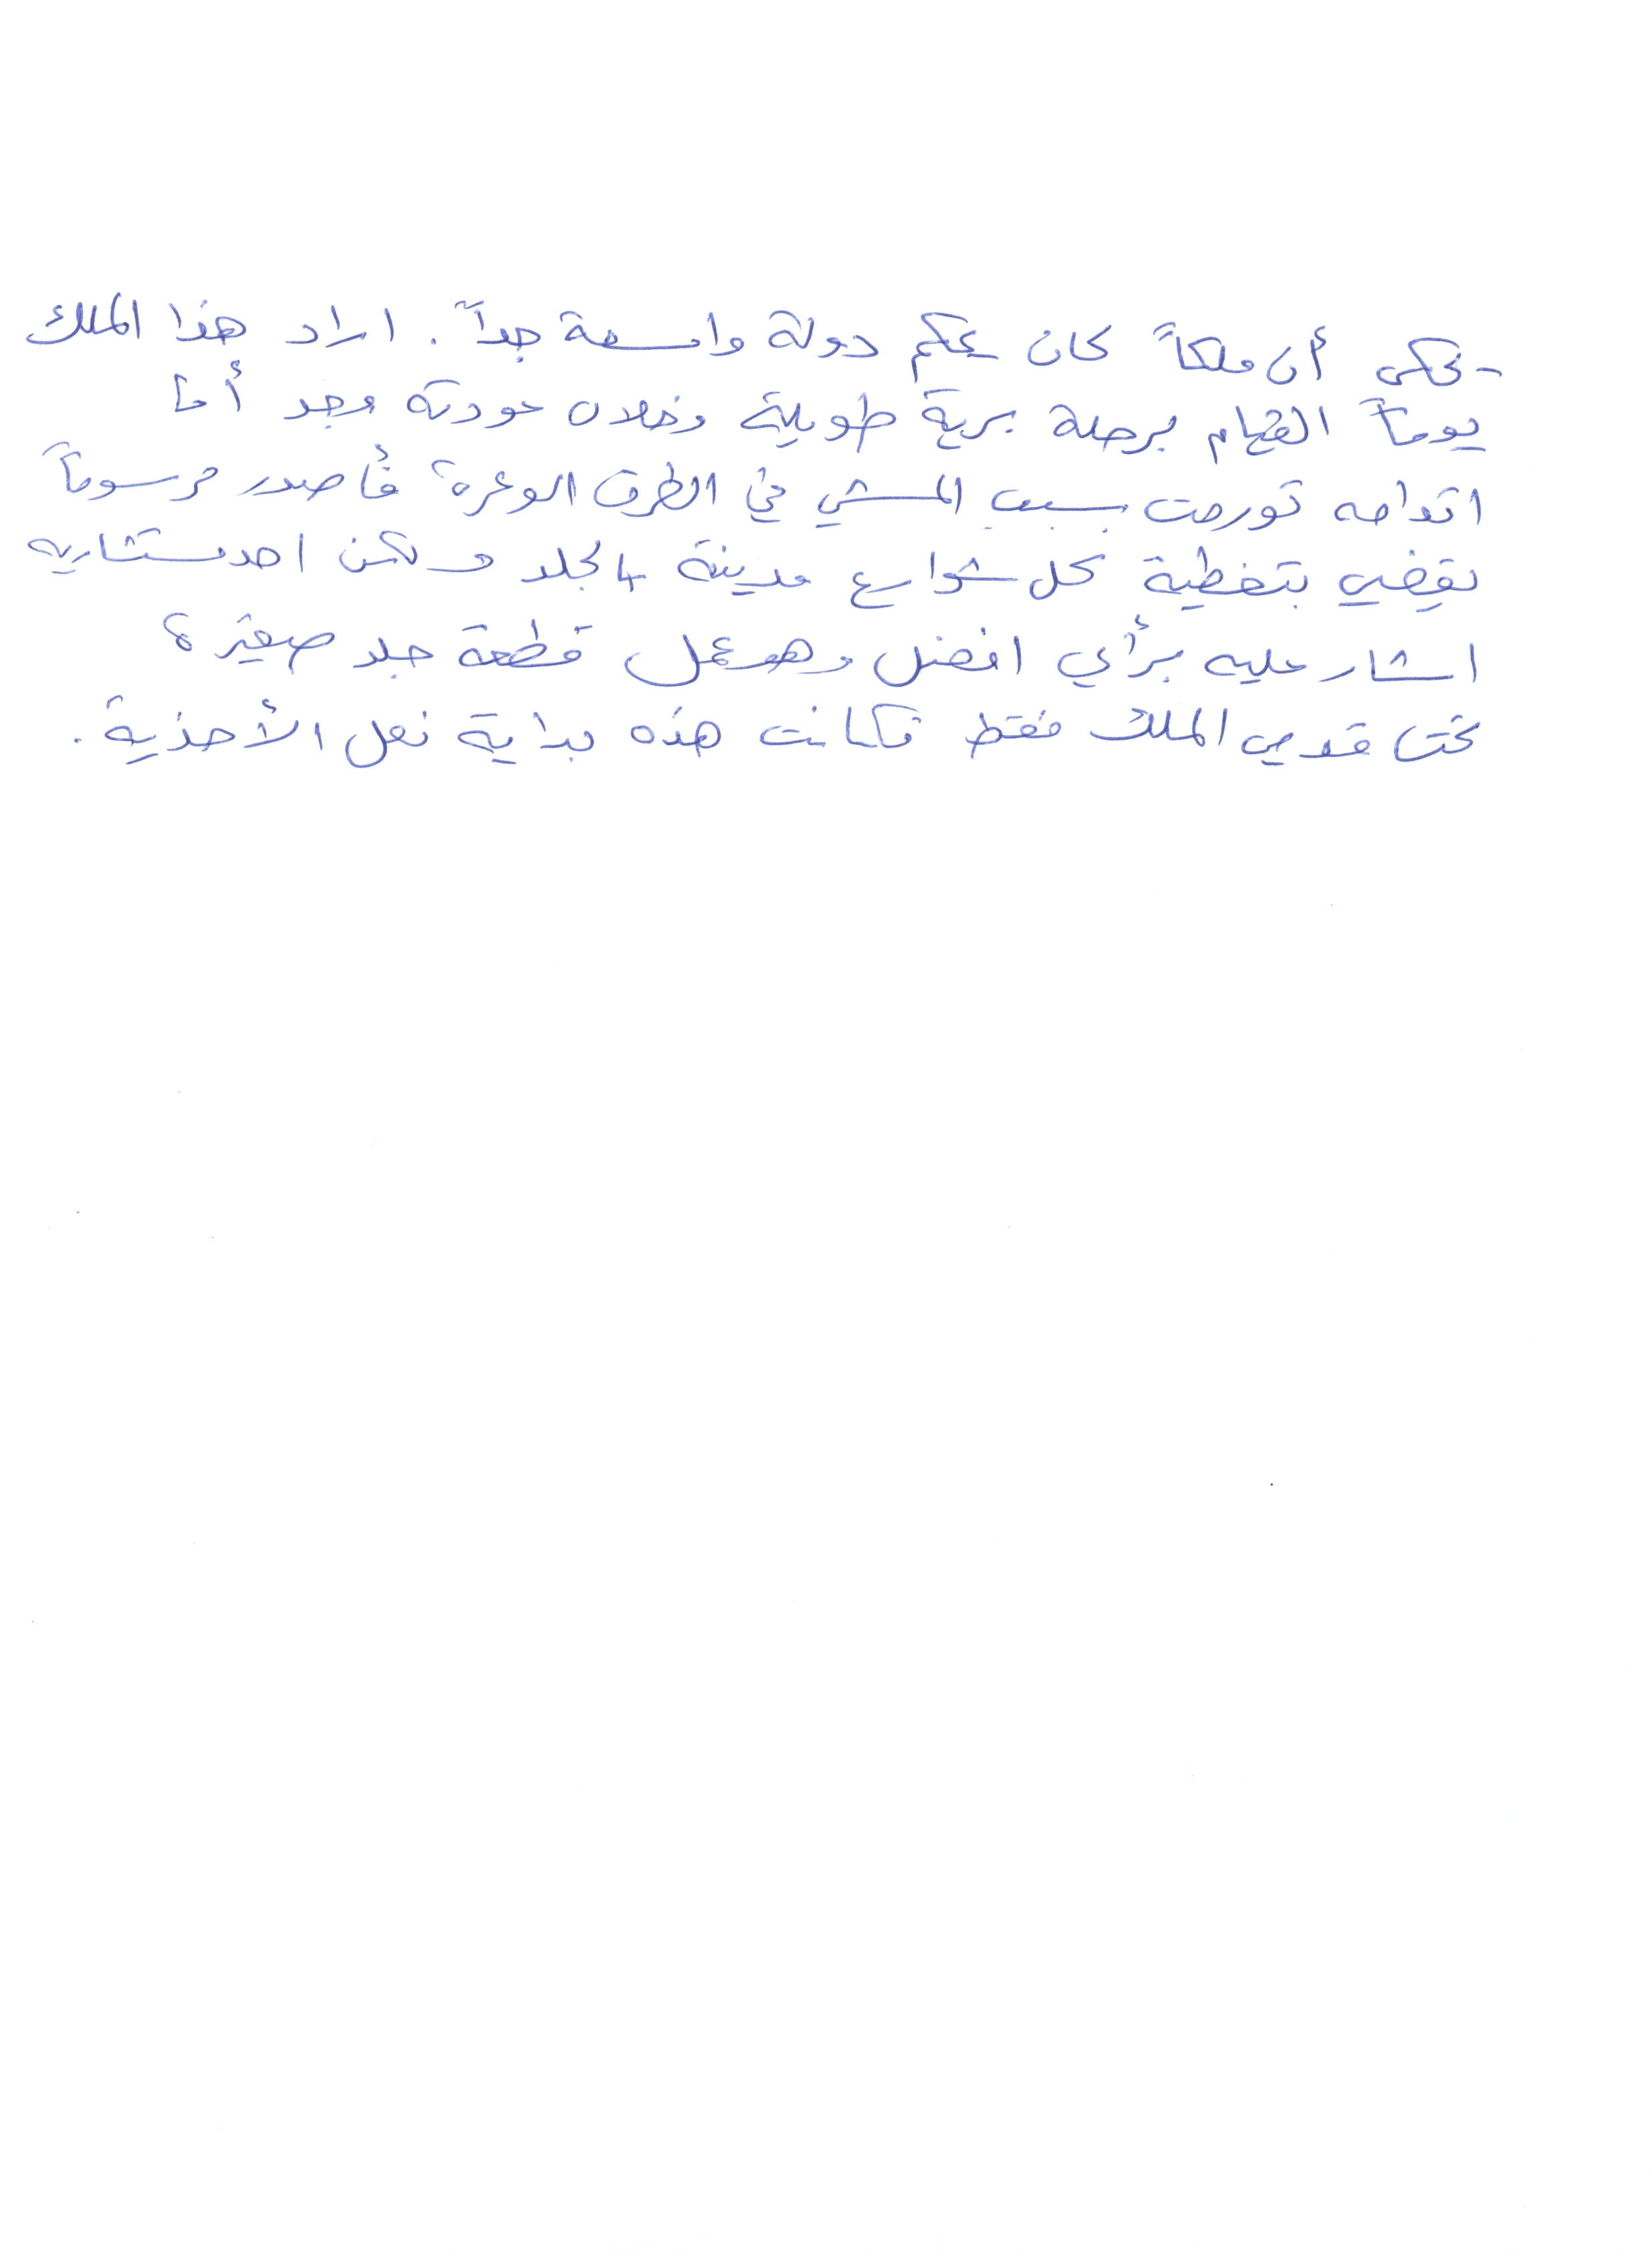 - يحكى أن ملكاً كان يحكم دولة واسعة جداً. اراد هذا الملك
يوماً القيام برحلة برية طويلة وخلال عودته وجد أن
اقدامه تورمت بسبب المشي في الطرق الوعرة، فأصدر مرسوماً
يقضي بتغطية كل شوارع مدينة بالجلد ولكن احد مستشاريه
اشار عليه برأي افضل وهو عمل قطعة جلد صغيرة
تحت قدمي الملك فقط فكانت هذه بداية نعل الأحذية.